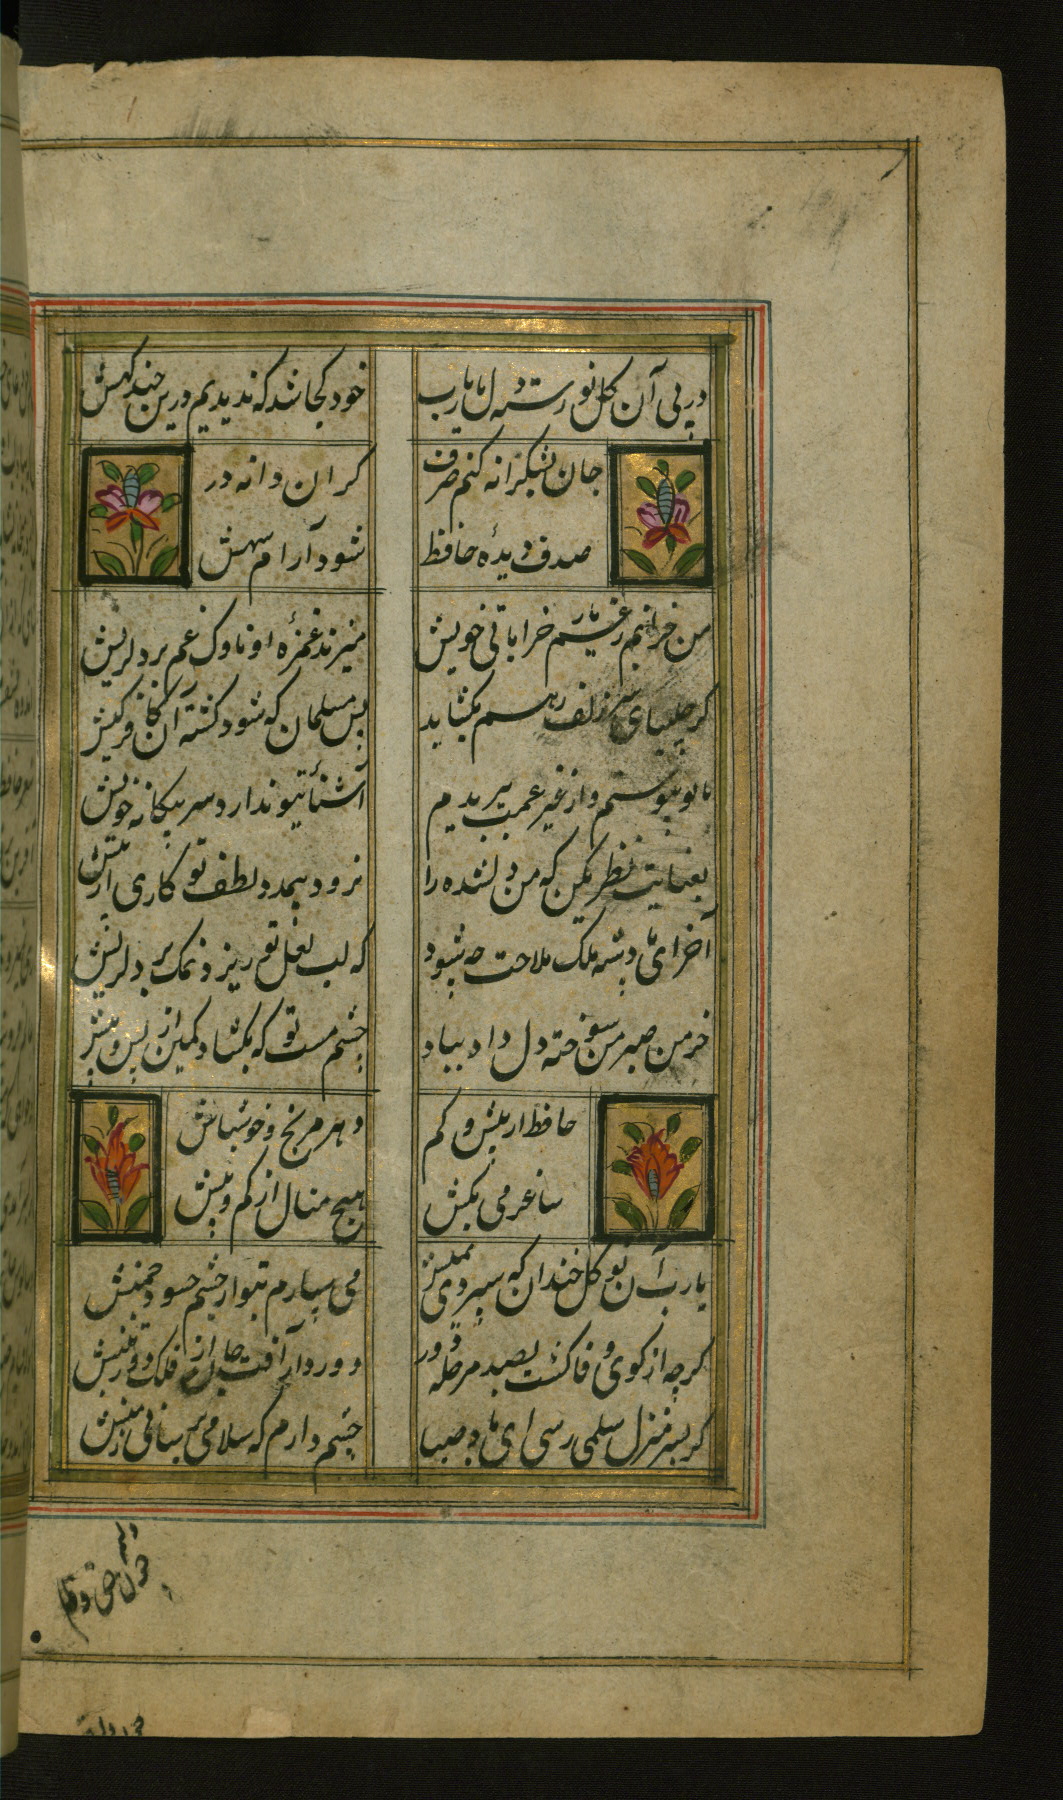 در پی آن گل نو رسته دل ما یارب
خود کجا شد که ندیدیم درین چند گهش
جان بشکرانه کنم صرف
گر ان دانه در
صدف دیده حافظ
شود آرام گهش
من خرابم ز غم یار خراباتی خویش
میزند غمزه او ناوک غم بر دل ریش
گر چلیپای سر زلف ز هم بکشاید
بس مسلمان که شود کشته ان کافر کیش
با تو پیوستم و از غیر تو ببریدم
آشنائی تو ندارد سر بیگانه و خویش
بعنایت نظری کن که من دلشده را
نرود بیمدد لطف تو کاری از پیش
آخر ای پادشه ملک ملاحت چه شود
که لب لعل تو ریزد نمک بر دل ریش
خرمن صبر من سوخته دل داد بباد
چشم مست تو که بکشاد کمین از پس و پیش
حافظ از بیش و کم
دهر مرنج و خوشباش
ساغر می بکش
هیچ منال از کم و بیش
یارب آن نو گل خندان که سپردی بمنش
می سپارم بتو از چشم حسود چمنش
گرچه از کوی وفا گشت بصد مرحله دور
دور دار آفت دور فلک از جان و تنش
گر بسر منزل سلمی رسی ای باد صبا
چشم دارم که سلامی برسانی ز منش